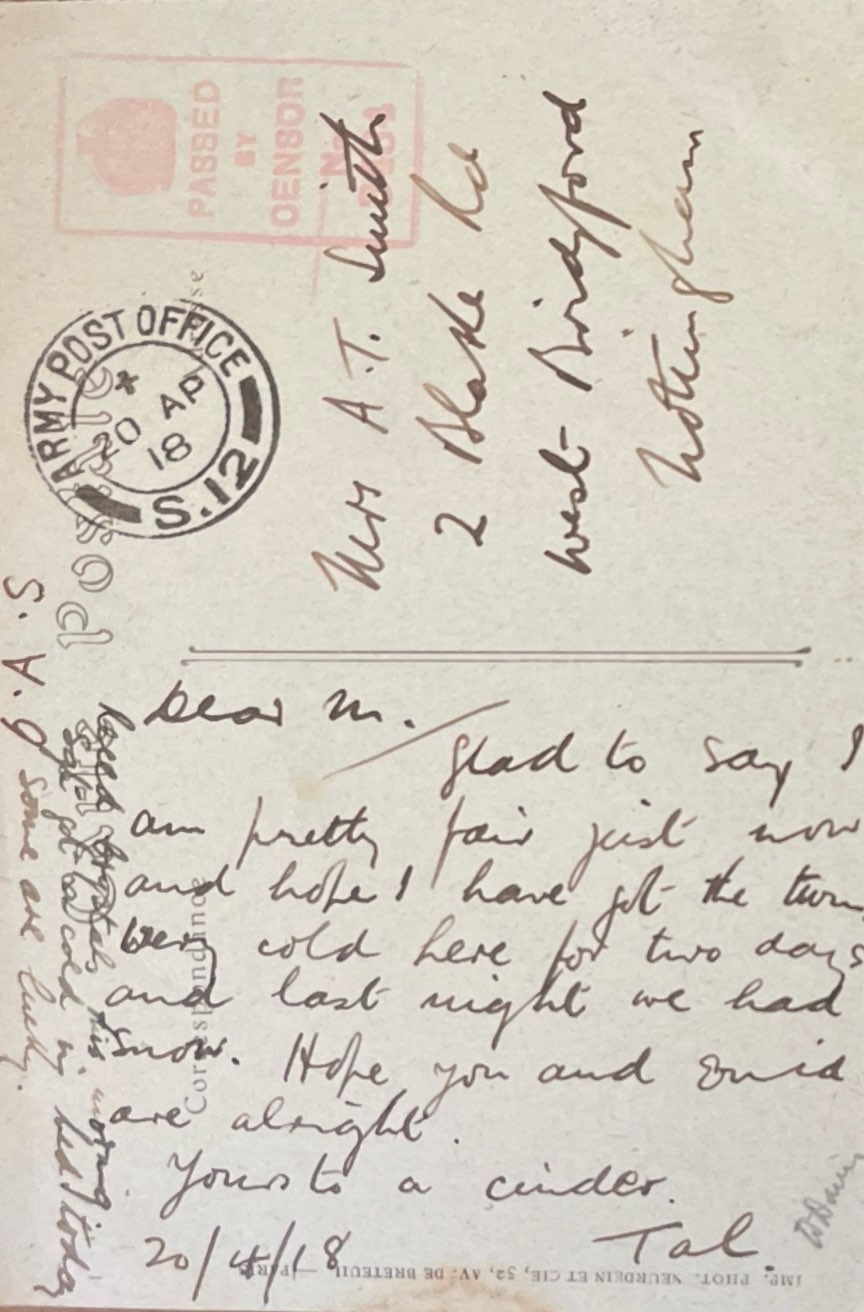 PASSED
BY
CENSOR
No
ARMY POST OFFICE
20 AP
18
S.12
Carte Postale
Correspondance
Mrs A.T. Smith
2 Blake Rd
West Bridgford
Nottingham
Dear M.
Glad to say I
am pretty fair just now
and hope I have got the turn
Very cold here for two days
and last night we had
snow. Hope you and Enid
are alright.
Yours to a cinder.
20/4/18 Tal
this morning
got a cold in bed today
some are lucky.
A. S.
IMP. PHOT. NEURDEIN ET CIE, 52, AV. DE BRETEUIL — PARIS